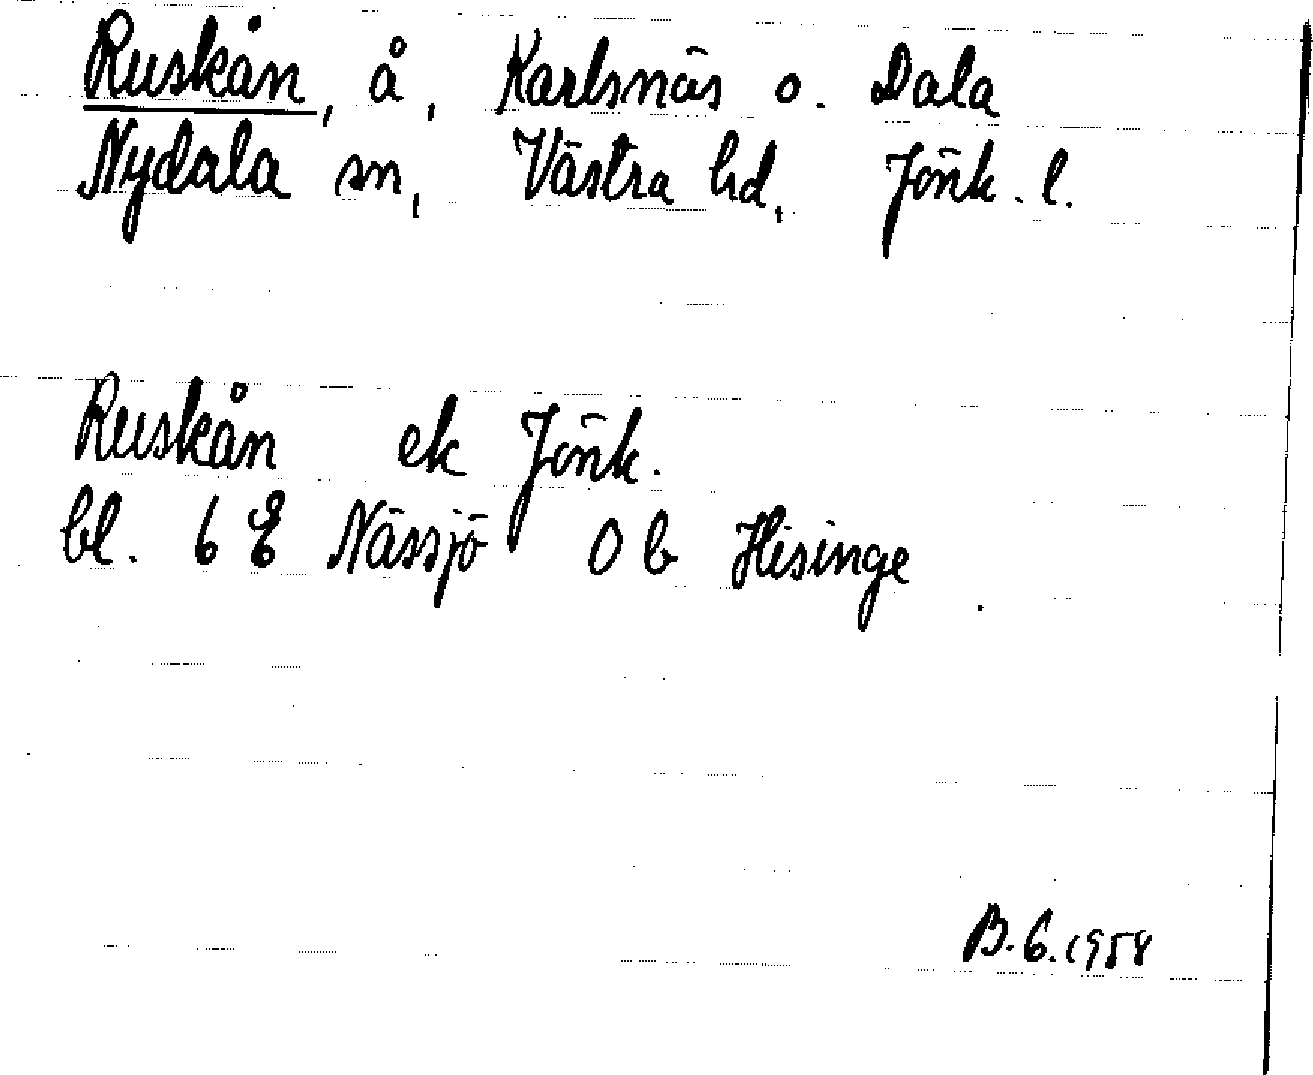 Ruskån, å, Karlsnäs o. Dala
Nydala sn, Västra hd, Jönk. l.
Ruskån ek Jönk.
bl. 6 E Nässjö 0 b Hisinge
B. G. 1958